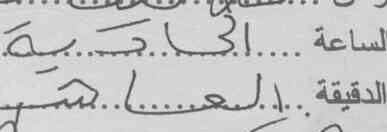 لساعة .... الحادية
الدقيقة .. العاشر